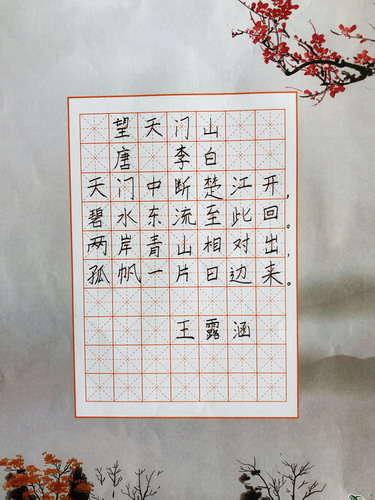 望天门山
唐 李白
天门中断楚江开，
碧水东流至此回。
两岸青山相对出，
孤帆一片日边来。
王露涵